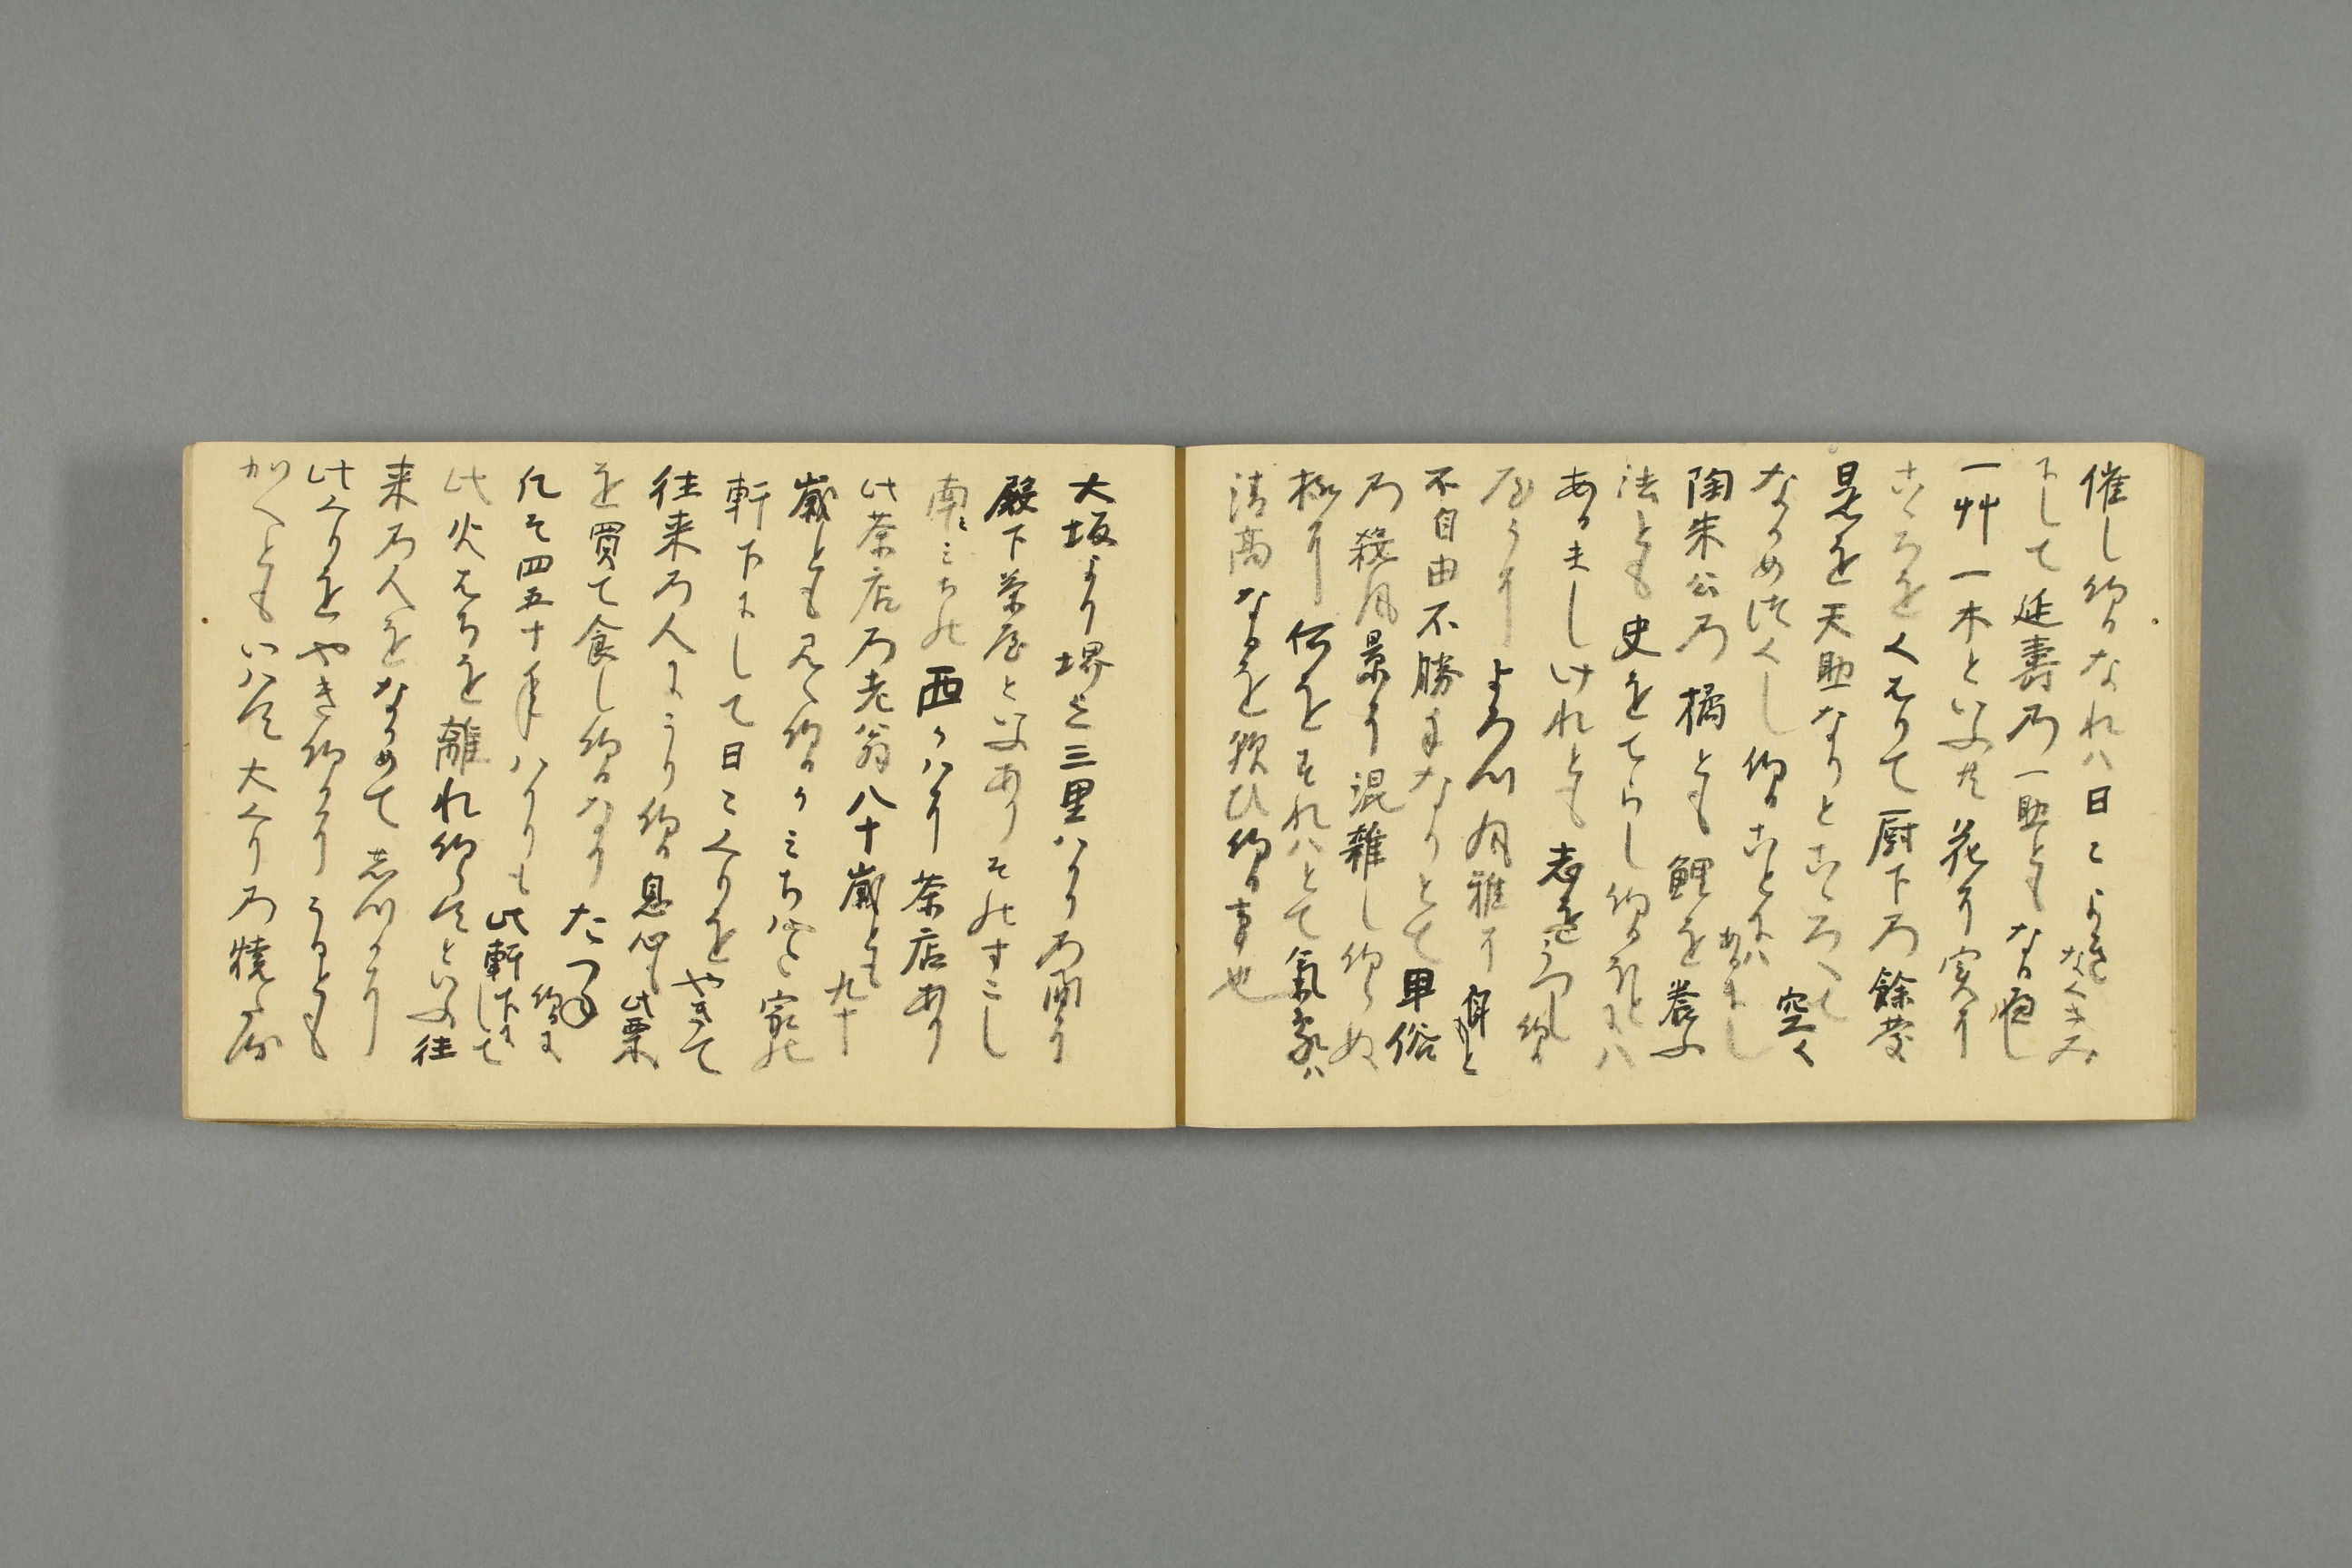 催し給るなれハ日こよきなくさみ
にして延壽乃一助ともなる也し
一艸一木といふ共花に実に
こゝろをくはりて厨下乃餘慶
是を天助なりとこゝろへて空く
なかめ徒くし給ることにハあるまし
陶朱公乃橘とも鯉を養ふ
法とも史をてらし給るほとにハ
あるましけれとも志をうつし給る
よろつ風雅に身を
不自由不勝手なりとて卑俗
乃殺風景に混雑し給らぬ
極に何をそれハとて氣象ハ
清高なるを欲ひ給る事也
大坂より堺迄三里ハかり乃間に
殿下茶屋といふありそのすこし
南にみちの西かハに茶店あり
此茶店乃老翁八十歳とも九十
歳とも見へ給るかみちはた家の
軒下にして日こくりをやきて
往来乃人にうり給る息心も此栗
を買て食し給るなりたつぬ給るに
凡そ四五十年ハかりも此軒下にして
此火はちを離れ給らすといふ往
来乃人をなかめて志つかに
此くりをやき給るにうるとも
かへともいハす大くり乃燒